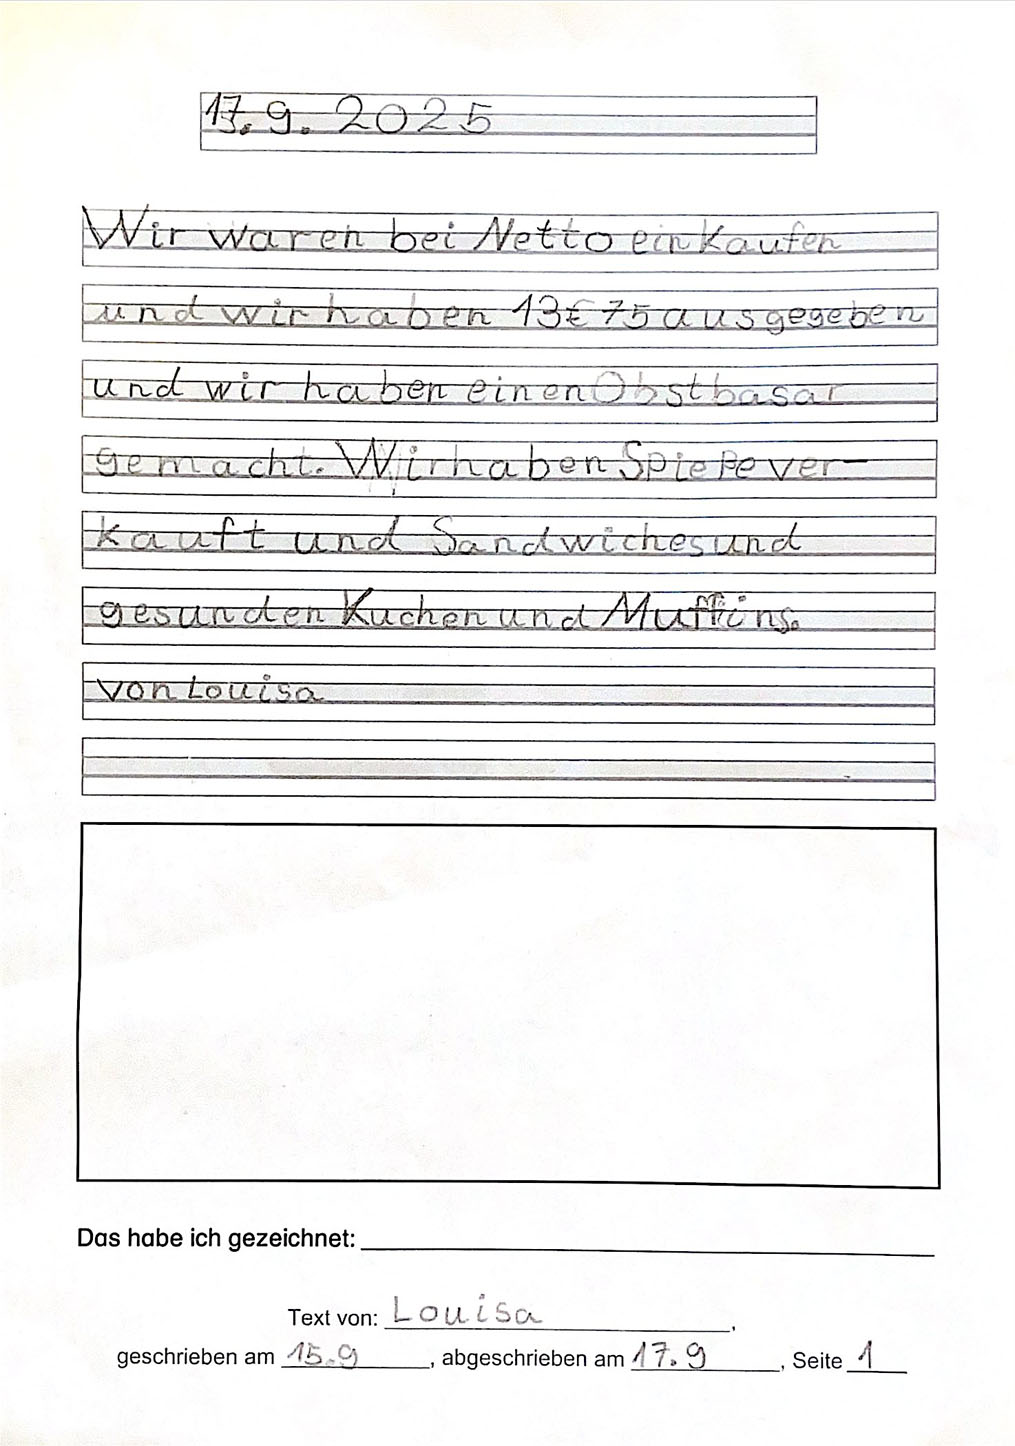 17.9.2025
Wir waren bei Netto einkaufen
und wir haben 13€75 ausgegeben
und wir haben einen Obstbasar
gemacht. Wir haben Spieße ver-
kauft und Sandwiches und
gesunden Kuchen und Muffins.
von Louisa
Das habe ich gezeichnet:
Text von: Louisa,
geschrieben am 15.9, abgeschrieben am 17.9, Seite 1